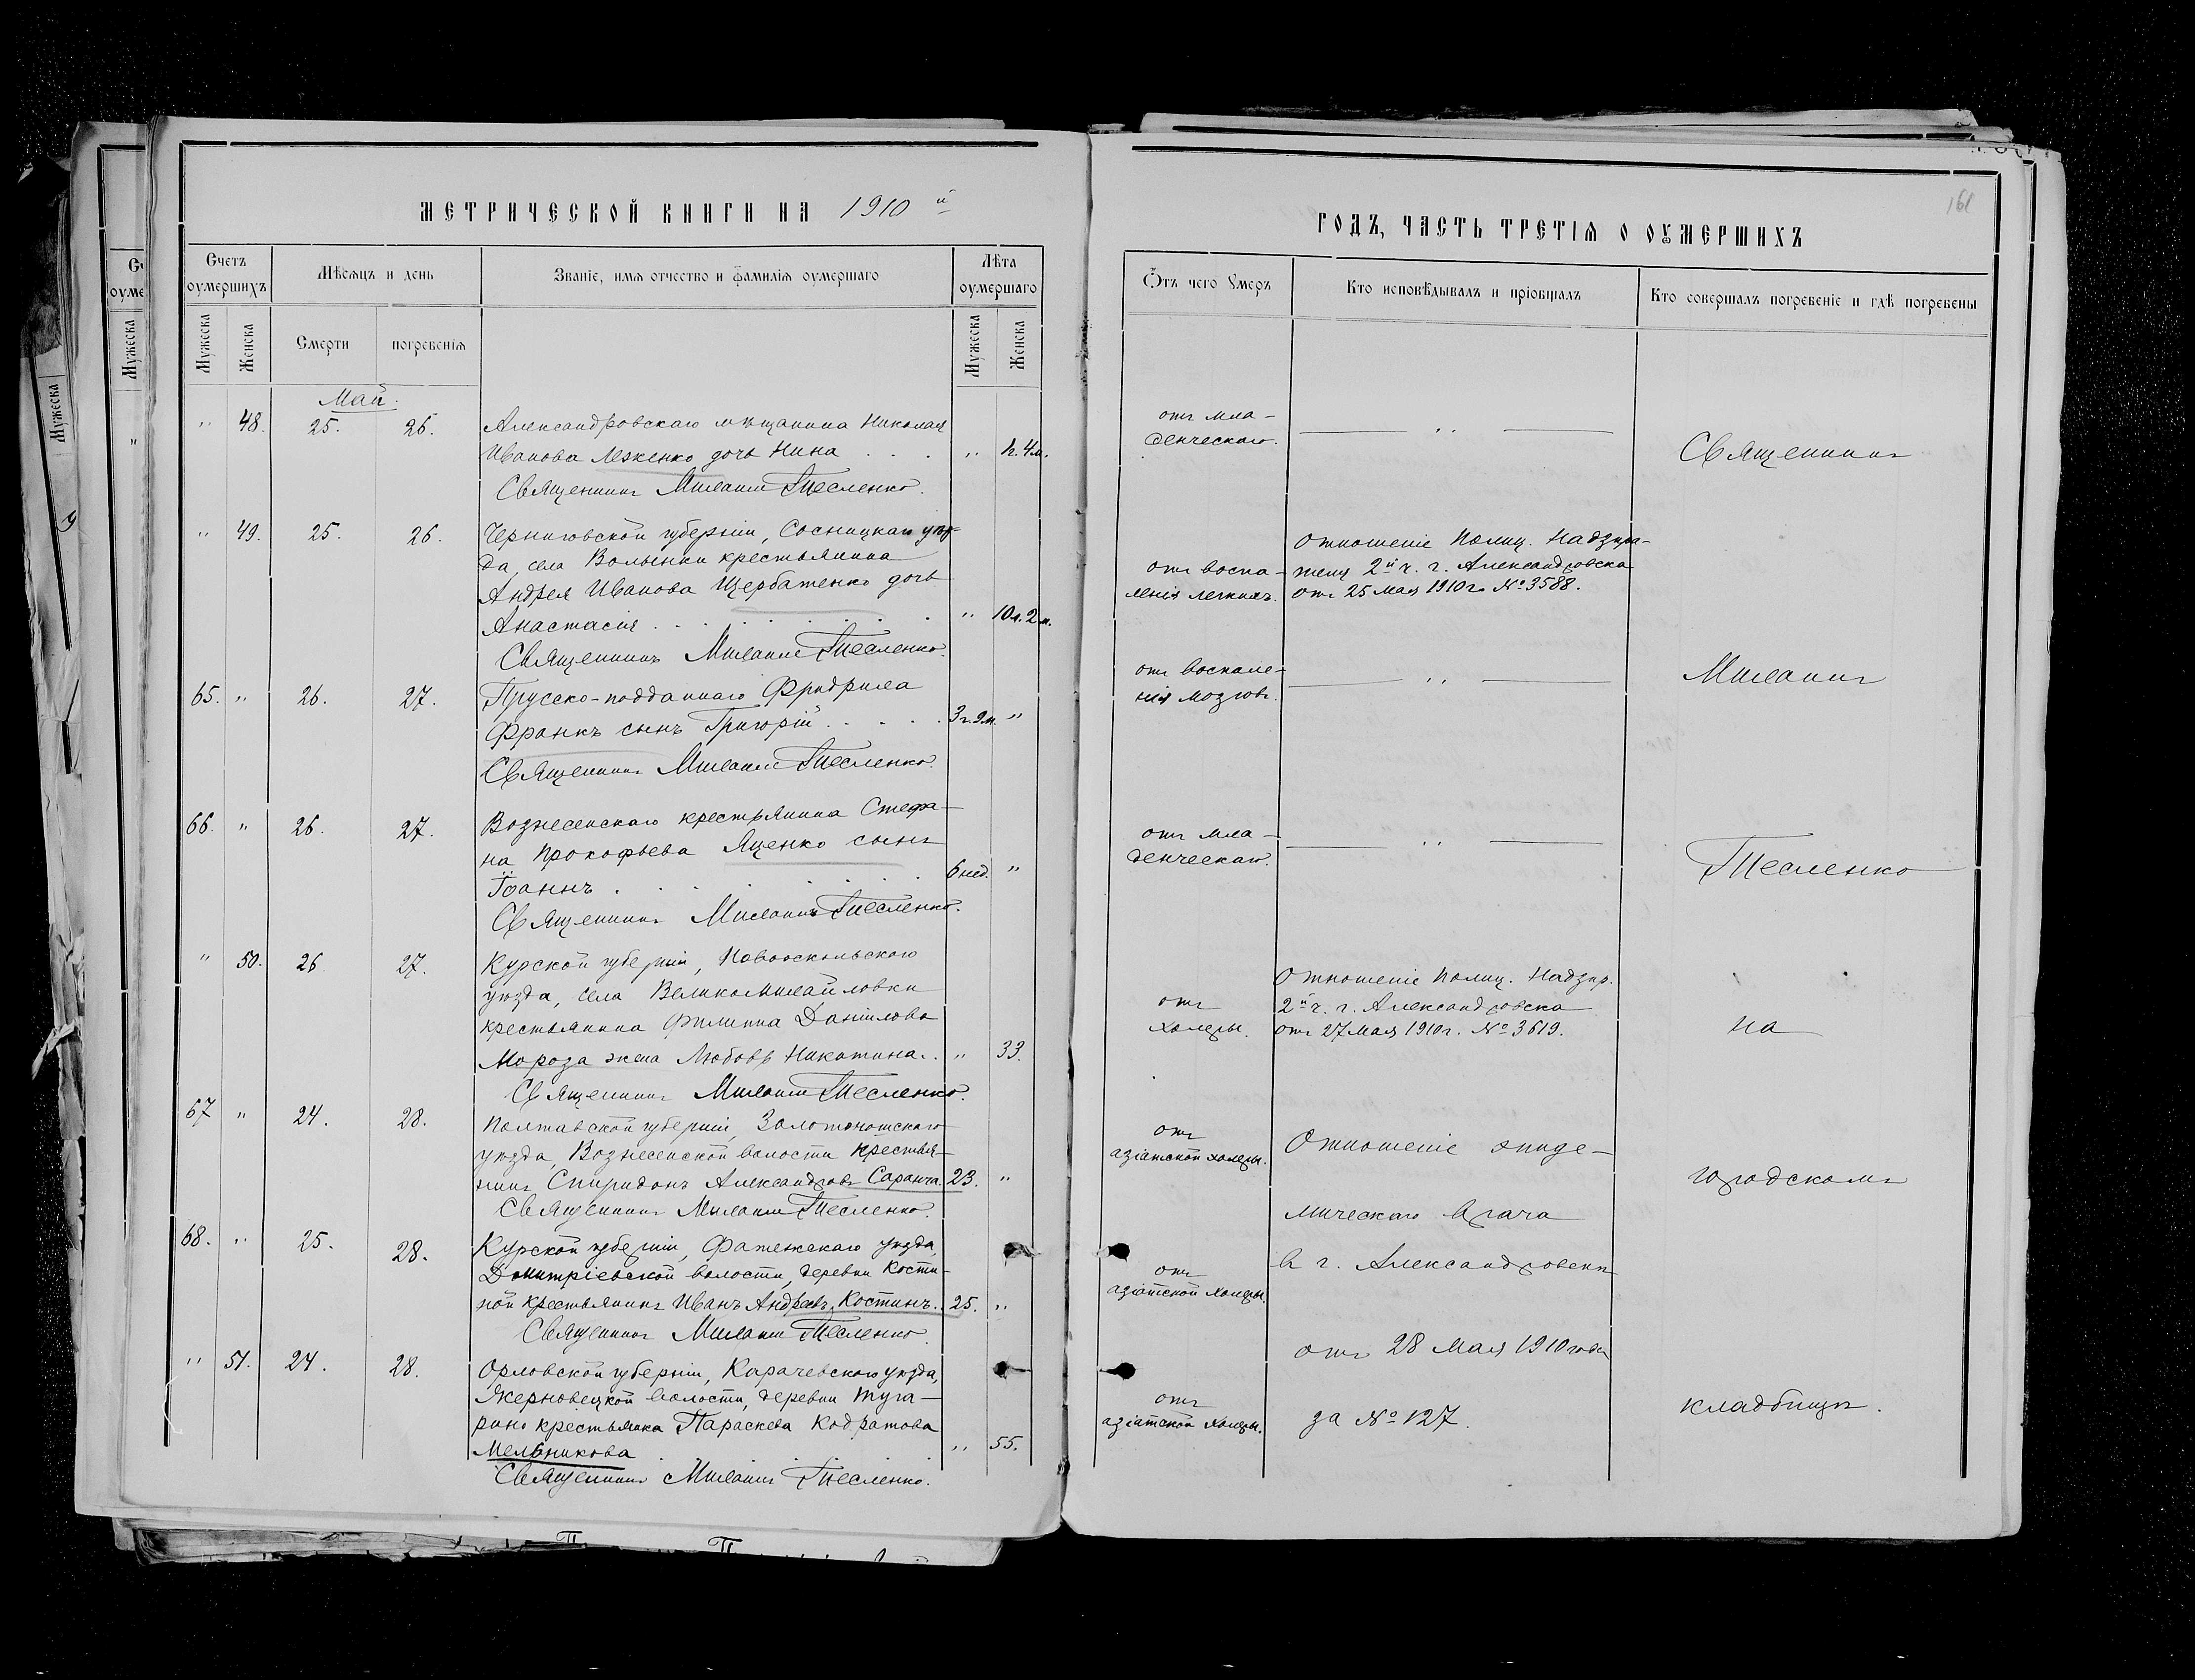 МЕТРИЧЕСКОЙ КНИГИ НА 1910 й
Счетъ оумершихъ
Мѣсяцъ и день
Званіе, имя отчество и фамилія оумершаго
Лѣта оумершаго
Мужеска
Женска
Смерти
погребенія
Мужеска
Женска
Май.
" 48. 25. 26. Александровскаго мѣщанина Николая
Иванова Леженко дочь Нина . . . . "
Священникъ Михаилъ Тесленко.
" 49. 25. 26. Черниговской губерніи, Сосницкаго уѣз-
да, села Волынки крестьянина
Андрея Иванова Щербатенко дочь
Анастасія . . . . . . . . " 10л. 2м.
Священникъ Михаилъ Тесленко.
65. " 26. 27. Прусско-подданнаго Фридриха
Франкъ сынъ Григорій . . . . . 3г. 9м. "
Священникъ Михаилъ Тесленко.
66. " 26. 27. Вознесенскаго крестьянина Стефа-
на Прокофьева Яценко сынъ
Іоаннъ . . . . . . . . 6 нед. "
Священникъ Михаилъ Тесленко.
" 50. 26 27. Курской губерніи, Новооскольскаго
уѣзда, села Великомихайловки
крестьянина Филиппа Данілова
Мороза жена Любовь Никитина . . " 33.
Священникъ Михаилъ Тесленко.
67 " 24. 28. Полтавской губерніи, Золотоношскаго
уѣзда, Вознесенской волости крестья-
нинъ Спиридонъ Александровъ Саранча. 23. "
Священникъ Михаилъ Тесленко.
68. " 25. 28. Курской губерніи, Фатежскаго уѣзда,
Дмитріевской волости, деревни Кости-
ной крестьянинъ Иванъ Андреевъ Костинъ. 25. "
Священникъ Михаилъ Тесленко.
" 51. 24. 28. Орловской губерніи, Карачевскаго уѣзда,
волости, деревни Туга-
рино крестьянка Параскева Кодратова
Мельникова . . . . " 55.
Священникъ Михаилъ Тесленко.
161
ГОДЪ, ЧАСТЬ ТРЕТІЯ О ОУМЕРШИХЪ
Отъ чего Умеръ
Кто исповѣдывалъ и пріобщалъ
Кто совершалъ погребеніе и гдѣ погребены
отъ мла-
денческаго.
"
Священникъ
отъ воспа-
ленія легкихъ.
Отношеніе Полиц. Надзира-
теля 2й ч. г. Александровска
отъ 25 Мая 1910г. № 3588.
отъ воспале-
нія мозговъ.
"
Михаилъ
отъ мла-
денческаго.
"
Тесленко
отъ
холеры.
Отношеніе Полиц. Надзир.
2й ч. г. Александровска
отъ 27 Мая 1910г. № 3619.
на
отъ
азіатской холеры.
Отношеніе эпиде-
городскомъ
мическаго врача
отъ
азіатской холеры.
в г. Александровскѣ
отъ 28 Мая 1910 года
отъ
азіатской холеры.
за № 127.
кладбищѣ.